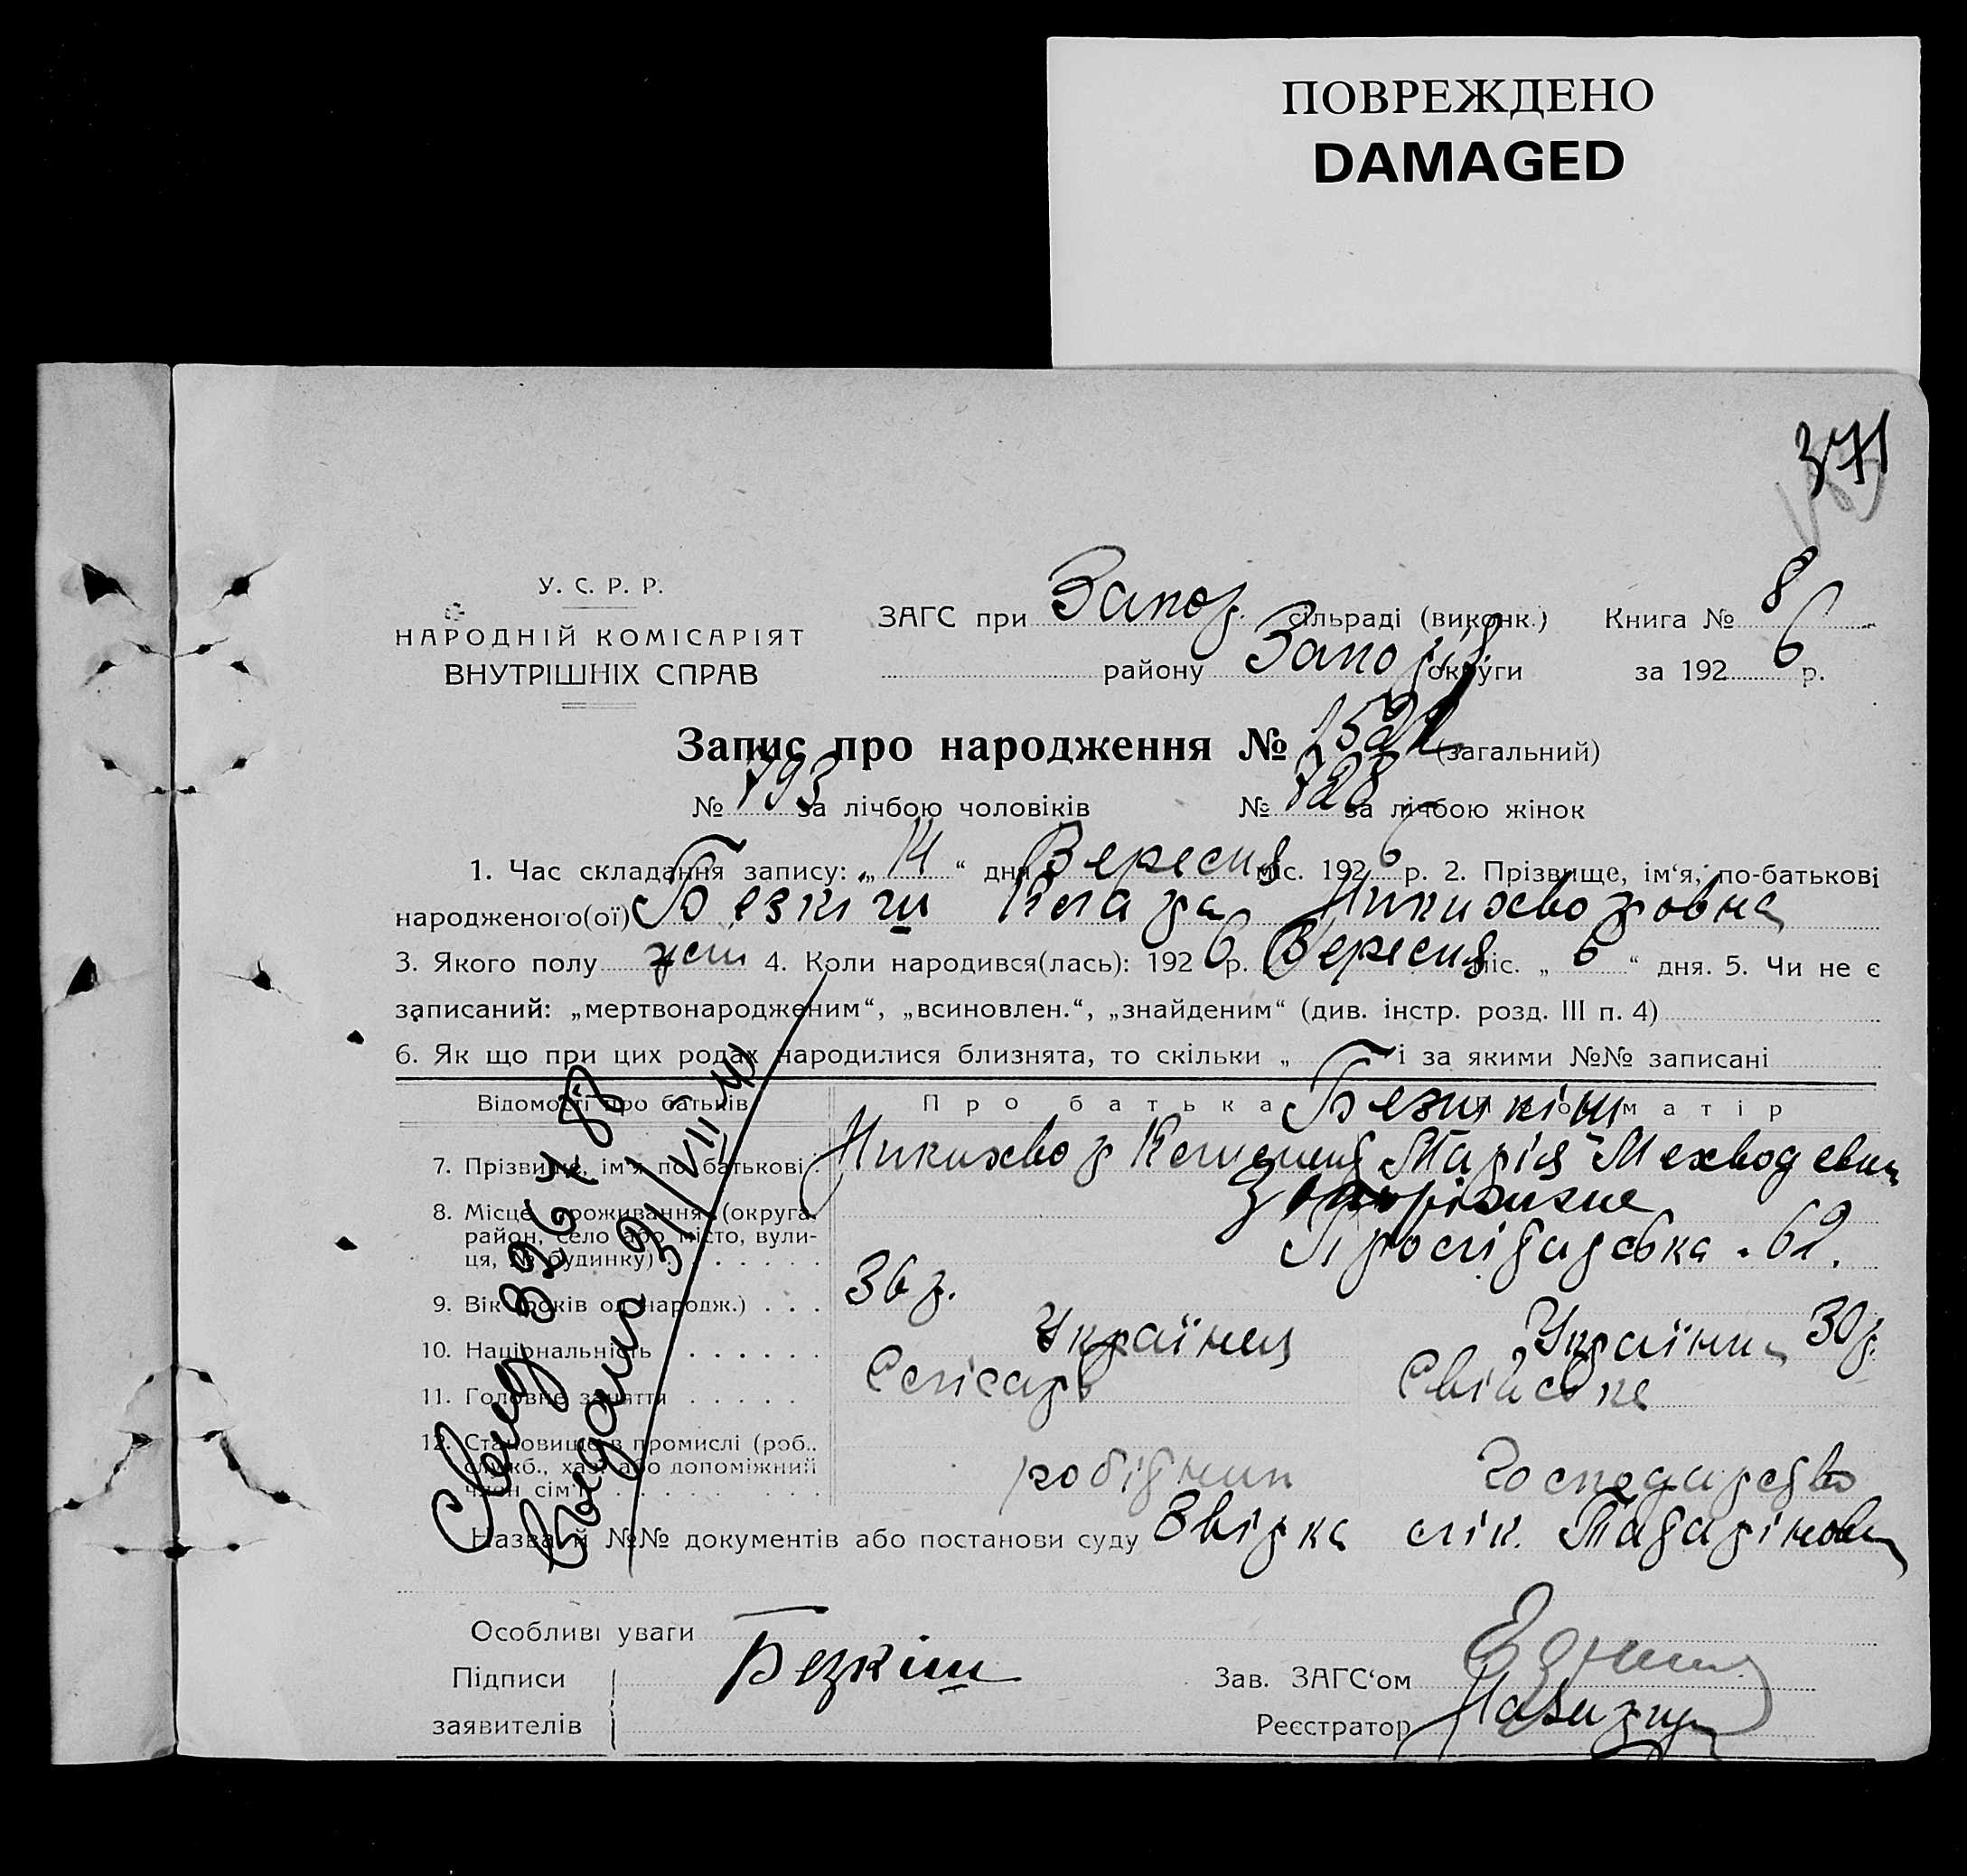 ПОВРЕЖДЕНО
DAMAGED
371
У. С. Р. Р.
НАРОДНІЙ КОМІСАРІЯТ
ВНУТРІШНІХ СПРАВ
ЗАГС при Запор. сільраді (виконк.) Книга № 8
району Запоріз округи за 1926 р.
Запис про народження № 1521 (загальний)
№ 793 за лічбою чоловіків № 728 за лічбою жінок
1. Час складання запису: „14“ дня Вересня міс. 1926 р. 2. Прізвище, ім‘я, по-батькові
народженого(ої) Безкіш Клара Никихворовна
3. Якого полу жін 4. Коли народився(лась): 1926 р. Вересня міс. „6“ дня. 5. Чи не є
записаний: „мертвонародженим“, „всиновлен.“, „знайденим“ (див. інстр. розд. III п. 4)
6. Як що при цих родах народилися близнята, то скільки „ і за якими №№ записані
Відомості про батьків Про батька Про матір
Безкіш
7. Прізвище, ім‘я по батькові Никихвор Марія Мехводевна
8. Місце проживання (округа, Запоріжжє
район, село або місто, вули-
ця, № будинку) 62.
9. Вік (років од народж.) 36 р. 30 р.
10. Національність Українец Українка
11. Головне заняття Слісарь Свійське
12. Становище в промислі (роб., службб., хаз. або допоміжний
член сім‘ї) робідник господарство
Назва й №№ документів або постанови суду Звірка лік.
Особливі уваги
Підписи Безкіш Зав. ЗАГС‘ом
заявителів Реєстратор
Выдано 31/VII